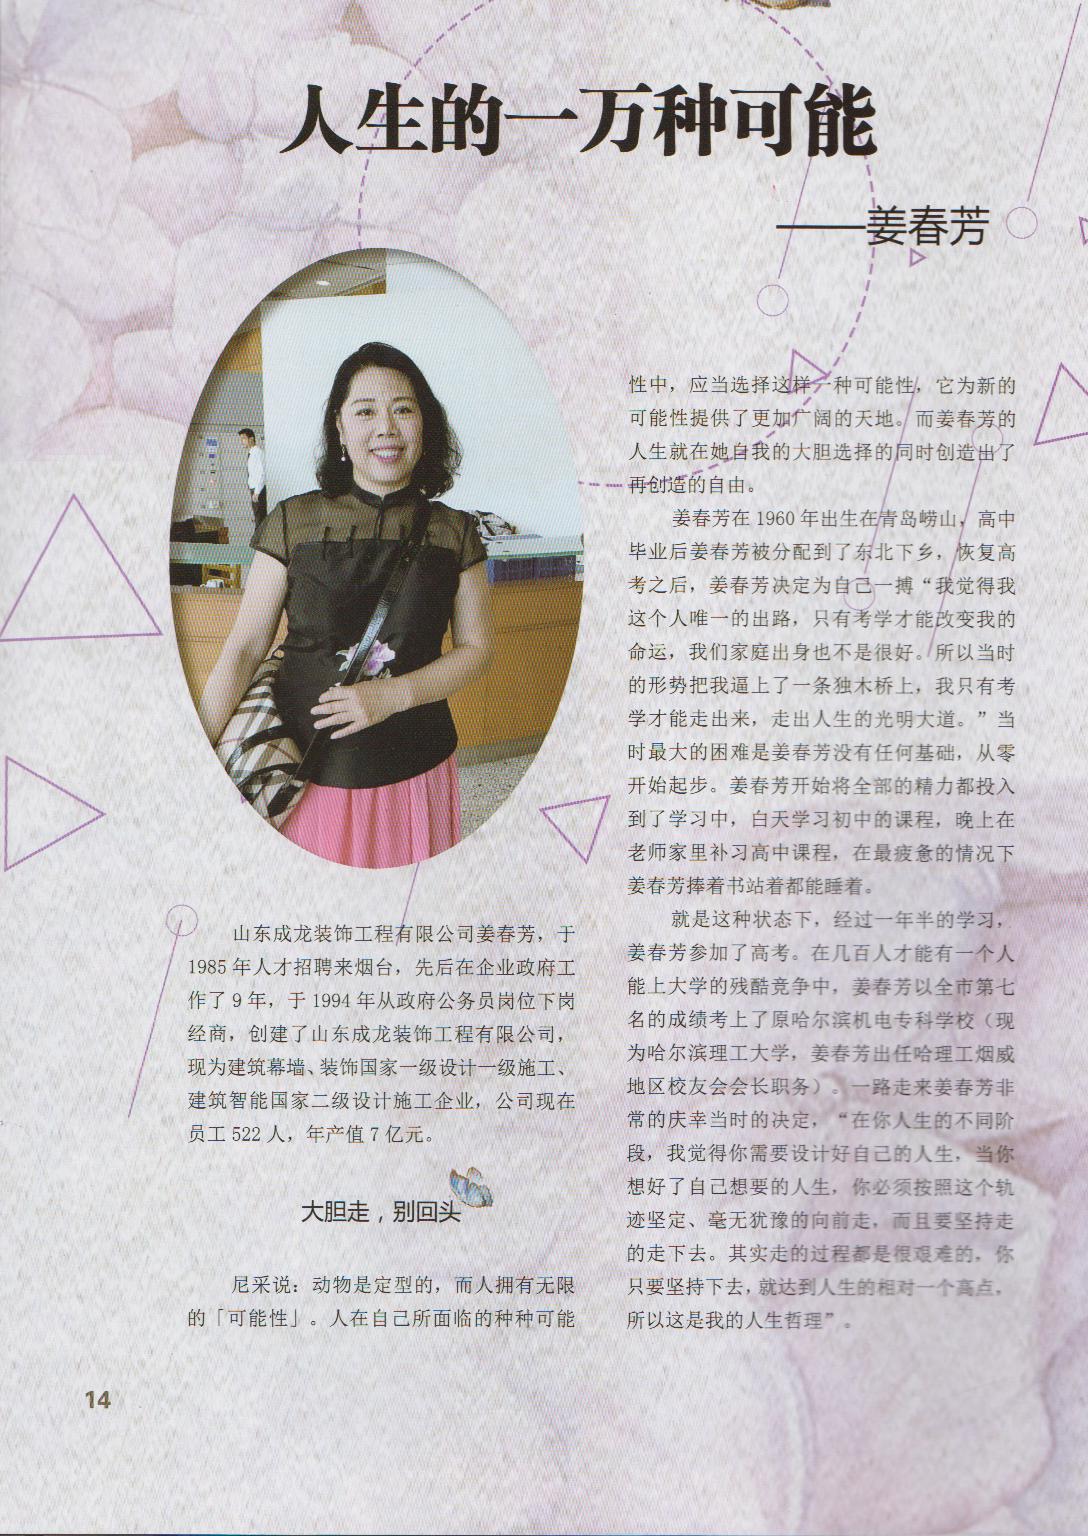 人生的一万种可能
——姜春芳
山东成龙装饰工程有限公司姜春芳，于
1985 年人才招聘来烟台，先后在企业政府工
作了 9 年，于 1994 年从政府公务员岗位下岗
经商，创建了山东成龙装饰工程有限公司，
现为建筑幕墙、装饰国家一级设计一级施工、
建筑智能国家二级设计施工企业，公司现在
员工 522 人，年产值 7 亿元。
大胆走，别回头
尼采说：动物是定型的，而人拥有无限
的「可能性」。人在自己所面临的种种可能
性中，应当选择这样一种可能性，它为新的
可能性提供了更加广阔的天地。而姜春芳的
人生就在她自我的大胆选择的同时创造出了
再创造的自由。
姜春芳在 1960 年出生在青岛崂山，高中
毕业后姜春芳被分配到了东北下乡，恢复高
考之后，姜春芳决定为自己一搏“我觉得我
这个人唯一的出路，只有考学才能改变我的
命运，我们家庭出身也不是很好。所以当时
的形势把我逼上了一条独木桥上，我只有考
学才能走出来，走出人生的光明大道。”当
时最大的困难是姜春芳没有任何基础，从零
开始起步。姜春芳开始将全部的精力都投入
到了学习中，白天学习初中的课程，晚上在
老师家里补习高中课程，在最疲惫的情况下
姜春芳捧着书站着都能睡着。
就是这种状态下，经过一年半的学习，
姜春芳参加了高考。在几百人才能有一个人
能上大学的残酷竞争中，姜春芳以全市第七
名的成绩考上了原哈尔滨机电专科学校（现
为哈尔滨理工大学，姜春芳出任哈理工烟威
地区校友会会长职务）。一路走来姜春芳非
常的庆幸当时的决定，“在你人生的不同阶
段，我觉得你需要设计好自己的人生，当你
想好了自己想要的人生，你必须按照这个轨
迹坚定、毫无犹豫的向前走，而且要坚持走
的走下去。其实走的过程都是很艰难的，你
只要坚持下去，就达到人生的相对一个高点，
所以这是我的人生哲理”。
14